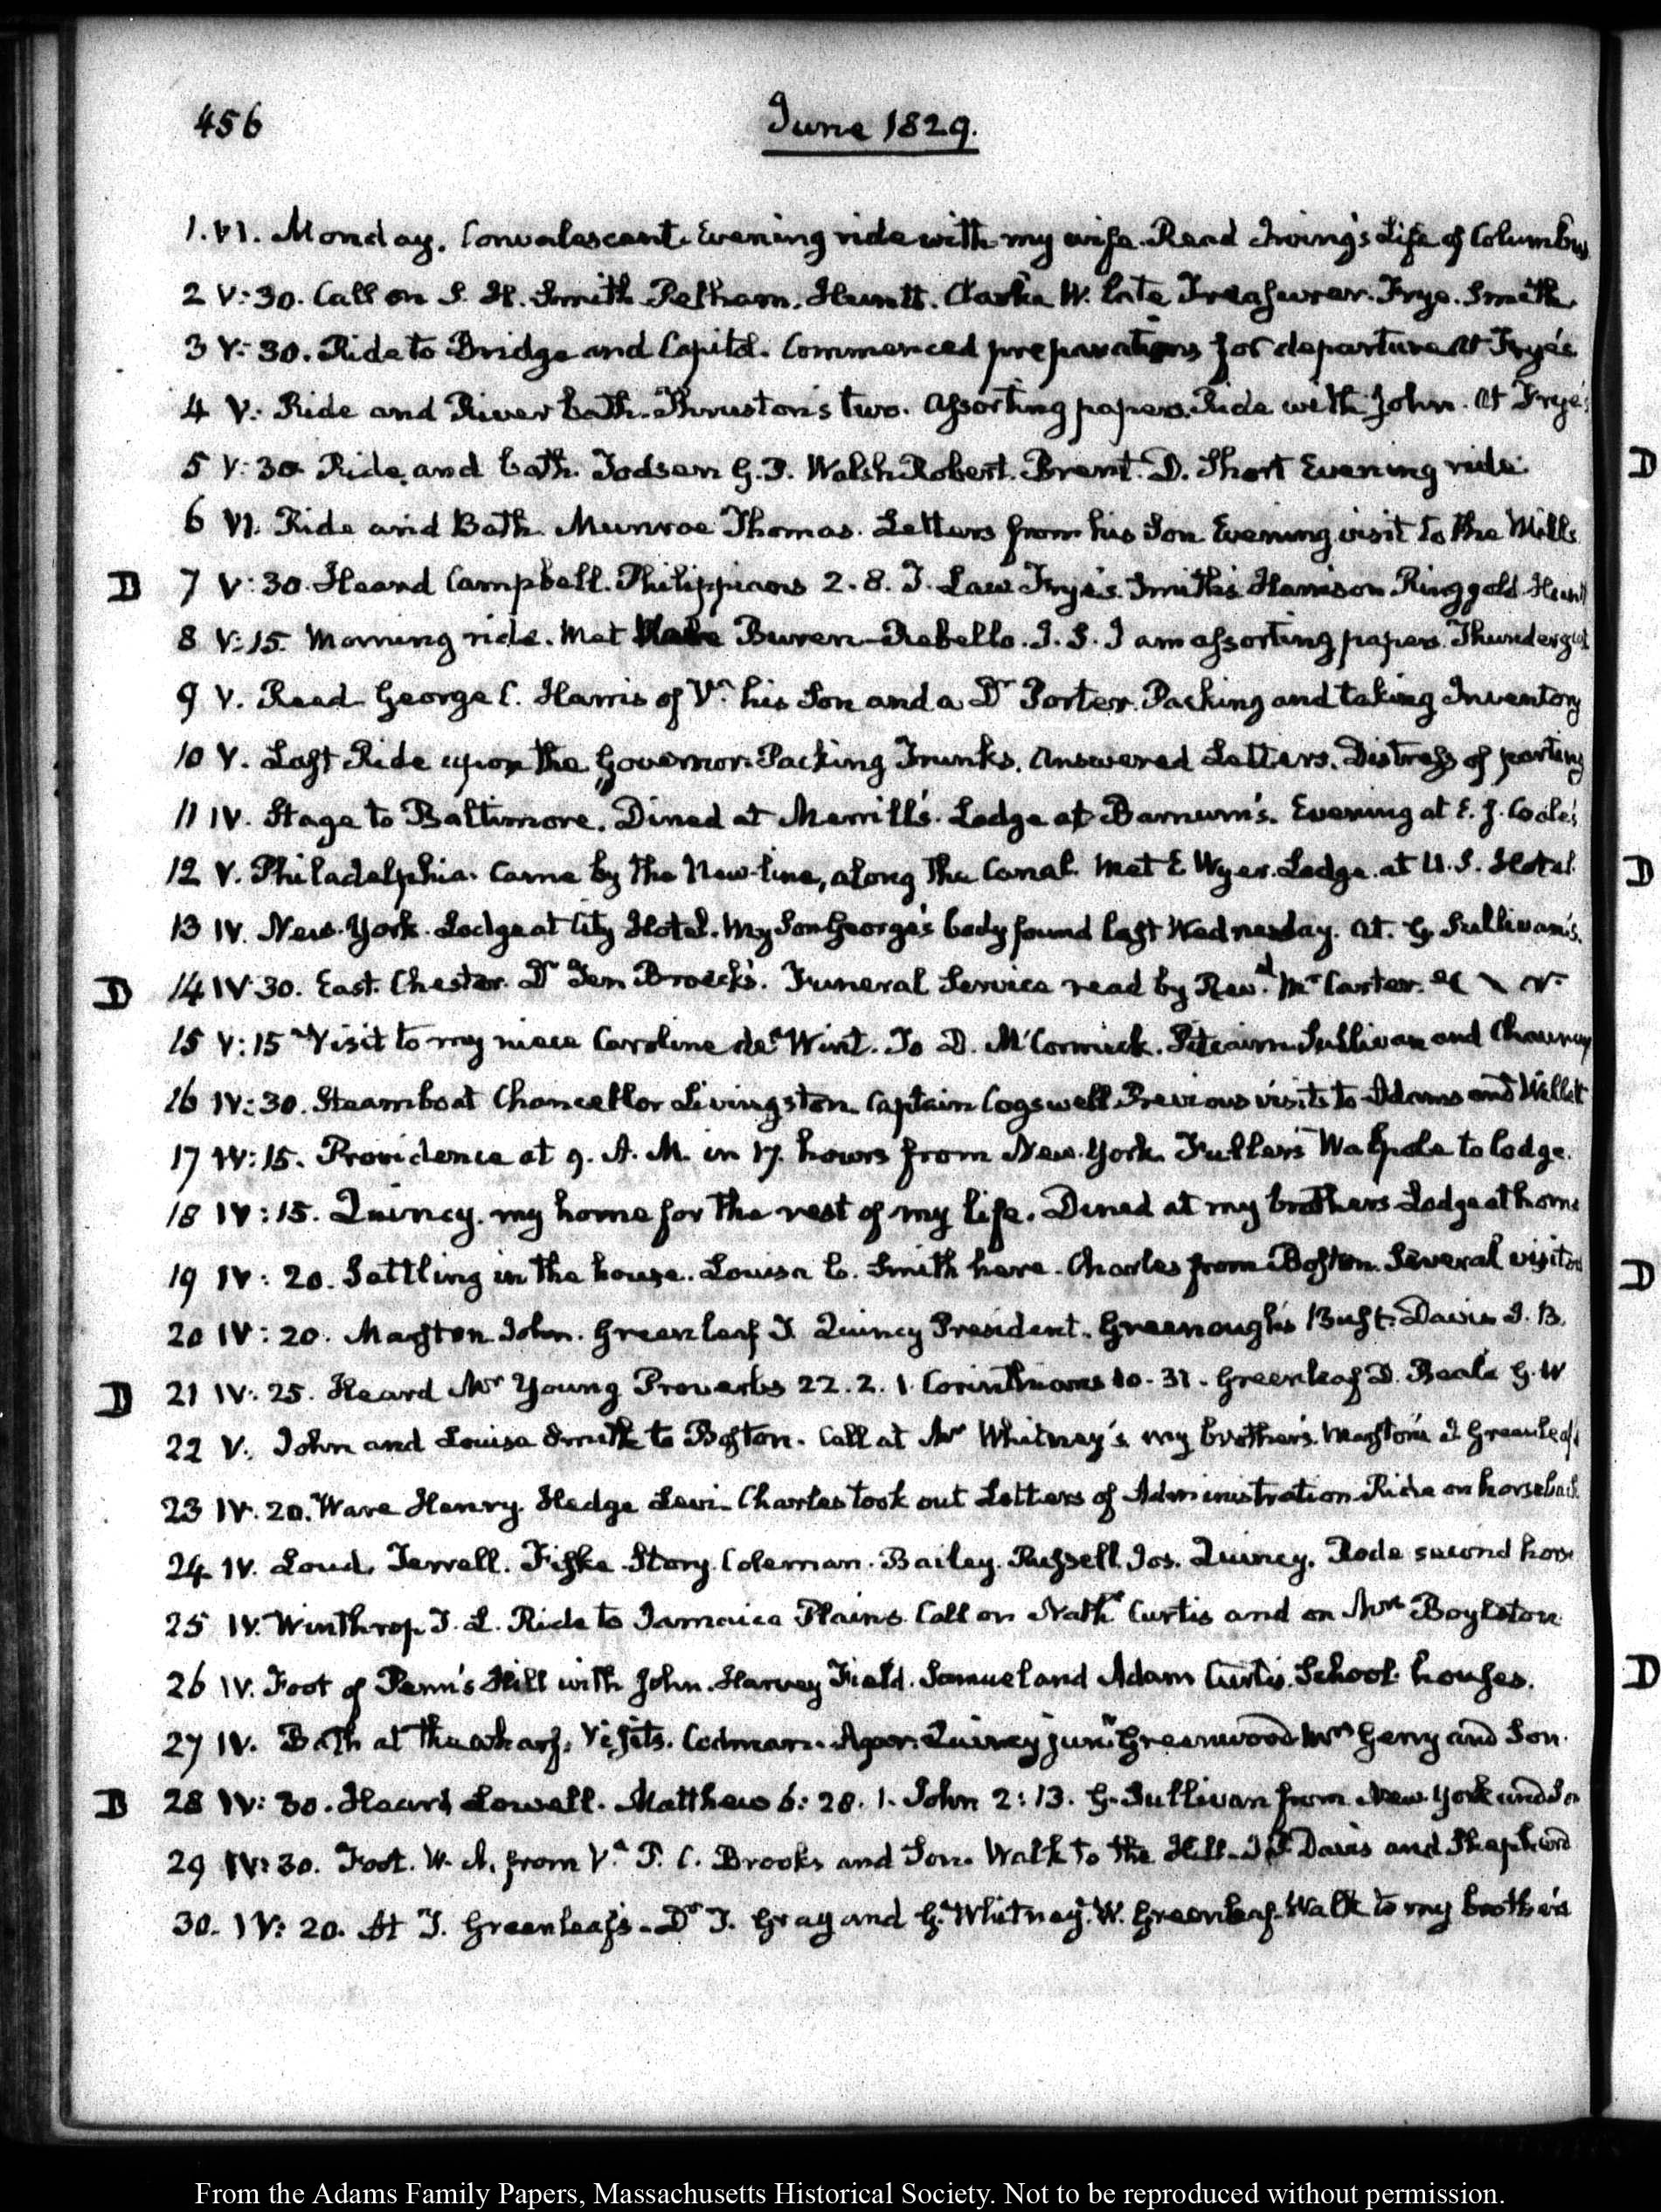 456
June 1829.
1. VI. Monday. Convalescent. Evening ride with my wife. Read Irving's Life of Columbus
2 V:30. Call on S. H. Smith Peltham. Huntt. Clarke W. late Treasurer. Frye. Smith.
3 V:30. Ride to Bridge and Capitol. Commenced preparations for departure at Frye's
4 V. Ride and River bath. Thruston's two. Assorting papers. Ride with John. At Frye's
5 V:30 Ride and bath. Todsen G. P. Walsh Robert. Brent. D. Short Evening ride.
6 VI. Ride and Bath. Munroe Thomas. Letters from his Son Evening visit to the Mills
D 7 V:30. Heard Campbell. Philippians 2. 8. T. Law Frye's. Smith's Harrison Ringgold. Hunt
8 V:15. Morning ride. Met Buren Rebello. J. S. I am assorting papers. Thundergust
9 V. Read George C. Harris of Va. his Son and a Dr Porter. Packing and taking Inventory
10 V. Last Ride upon the Governor. Packing Trunks. Answered Letters. Distress of parting
11 IV. Stage to Baltimore. Dined at Merrill's. Lodge at Barnum's. Evening at E. J. Coale's
12 V. Philadelphia. Came by the New-line, along the Canal. Met E Wyer. Lodge at U. S. Hotel
13 IV. New-York. Lodge at City Hotel. My Son George's body found last Wednesday. At G. Sullivan's.
D 14 IV 30. East-Chester. Dr Ten Broeck's. Funeral Service read by Revd. Mr Carter.
15 V:15 Visit to my niece Caroline de Wint. To D. McCormick. Pitcairn Sullivan and Chauncey
16 IV:30. Steamboat Chancellor Livingston. Captain Cogswell Previous visits to Adams and Willet
17 IV:15. Providence at 9. A. M. in 17. hours from New-York. Fuller's Walpole to lodge.
18 IV:15. Quincy. my home for the rest of my life. Dined at my brothers Lodge at home
19 IV: 20. Settling in the house. Louisa C. Smith here. Charles from Boston. Several visitors
20 IV: 20. Marston John. Greenleaf T. Quincy President. Greenough's Bust. Davis I. B.
D 21 IV: 25. Heard Mr Young Proverbs 22. 2. 1. Corinthians 10. 31. Greenleaf D. Beale G. W
22 V. John and Louisa Smith to Boston. Call at Mr Whitney's my brother's. Marston's Greenleaf's
23 IV. 20. Ware Henry. Hedge Levi. Charles took out Letters of Administration Ride on horseback
24 IV. Loud. Terrell. Fiske Story. Coleman. Bailey. Russell Jos. Quincy. Rode second horse
25 IV. Winthrop T. L. Ride to Jamaica Plains. Call on Nathl Curtis and on Mrs Boylston
26 IV. Foot of Penn's Hill with John. Harvey Field. Samuel and Adam Curtis. School houses.
27 IV. Bath at the wharf. Visits. Codman. Quincy junr Greenwood Mrs Gerry and Son.
D 28 IV: 30. Heard Lowell. Matthew 6: 28. 1. John 2: 13. G. Sullivan from New-York and Son
29 IV: 30. Foot. W. A. from Va. P. C. Brooks and Son. Walk to the Hill. Davis and Shepherd
30. IV: 20. At T. Greenleaf's. Dr T. Gray and G. Whitney. W. Greenleaf. Walk to my brother's
D
D
D
D
From the Adams Family Papers, Massachusetts Historical Society. Not to be reproduced without permission.